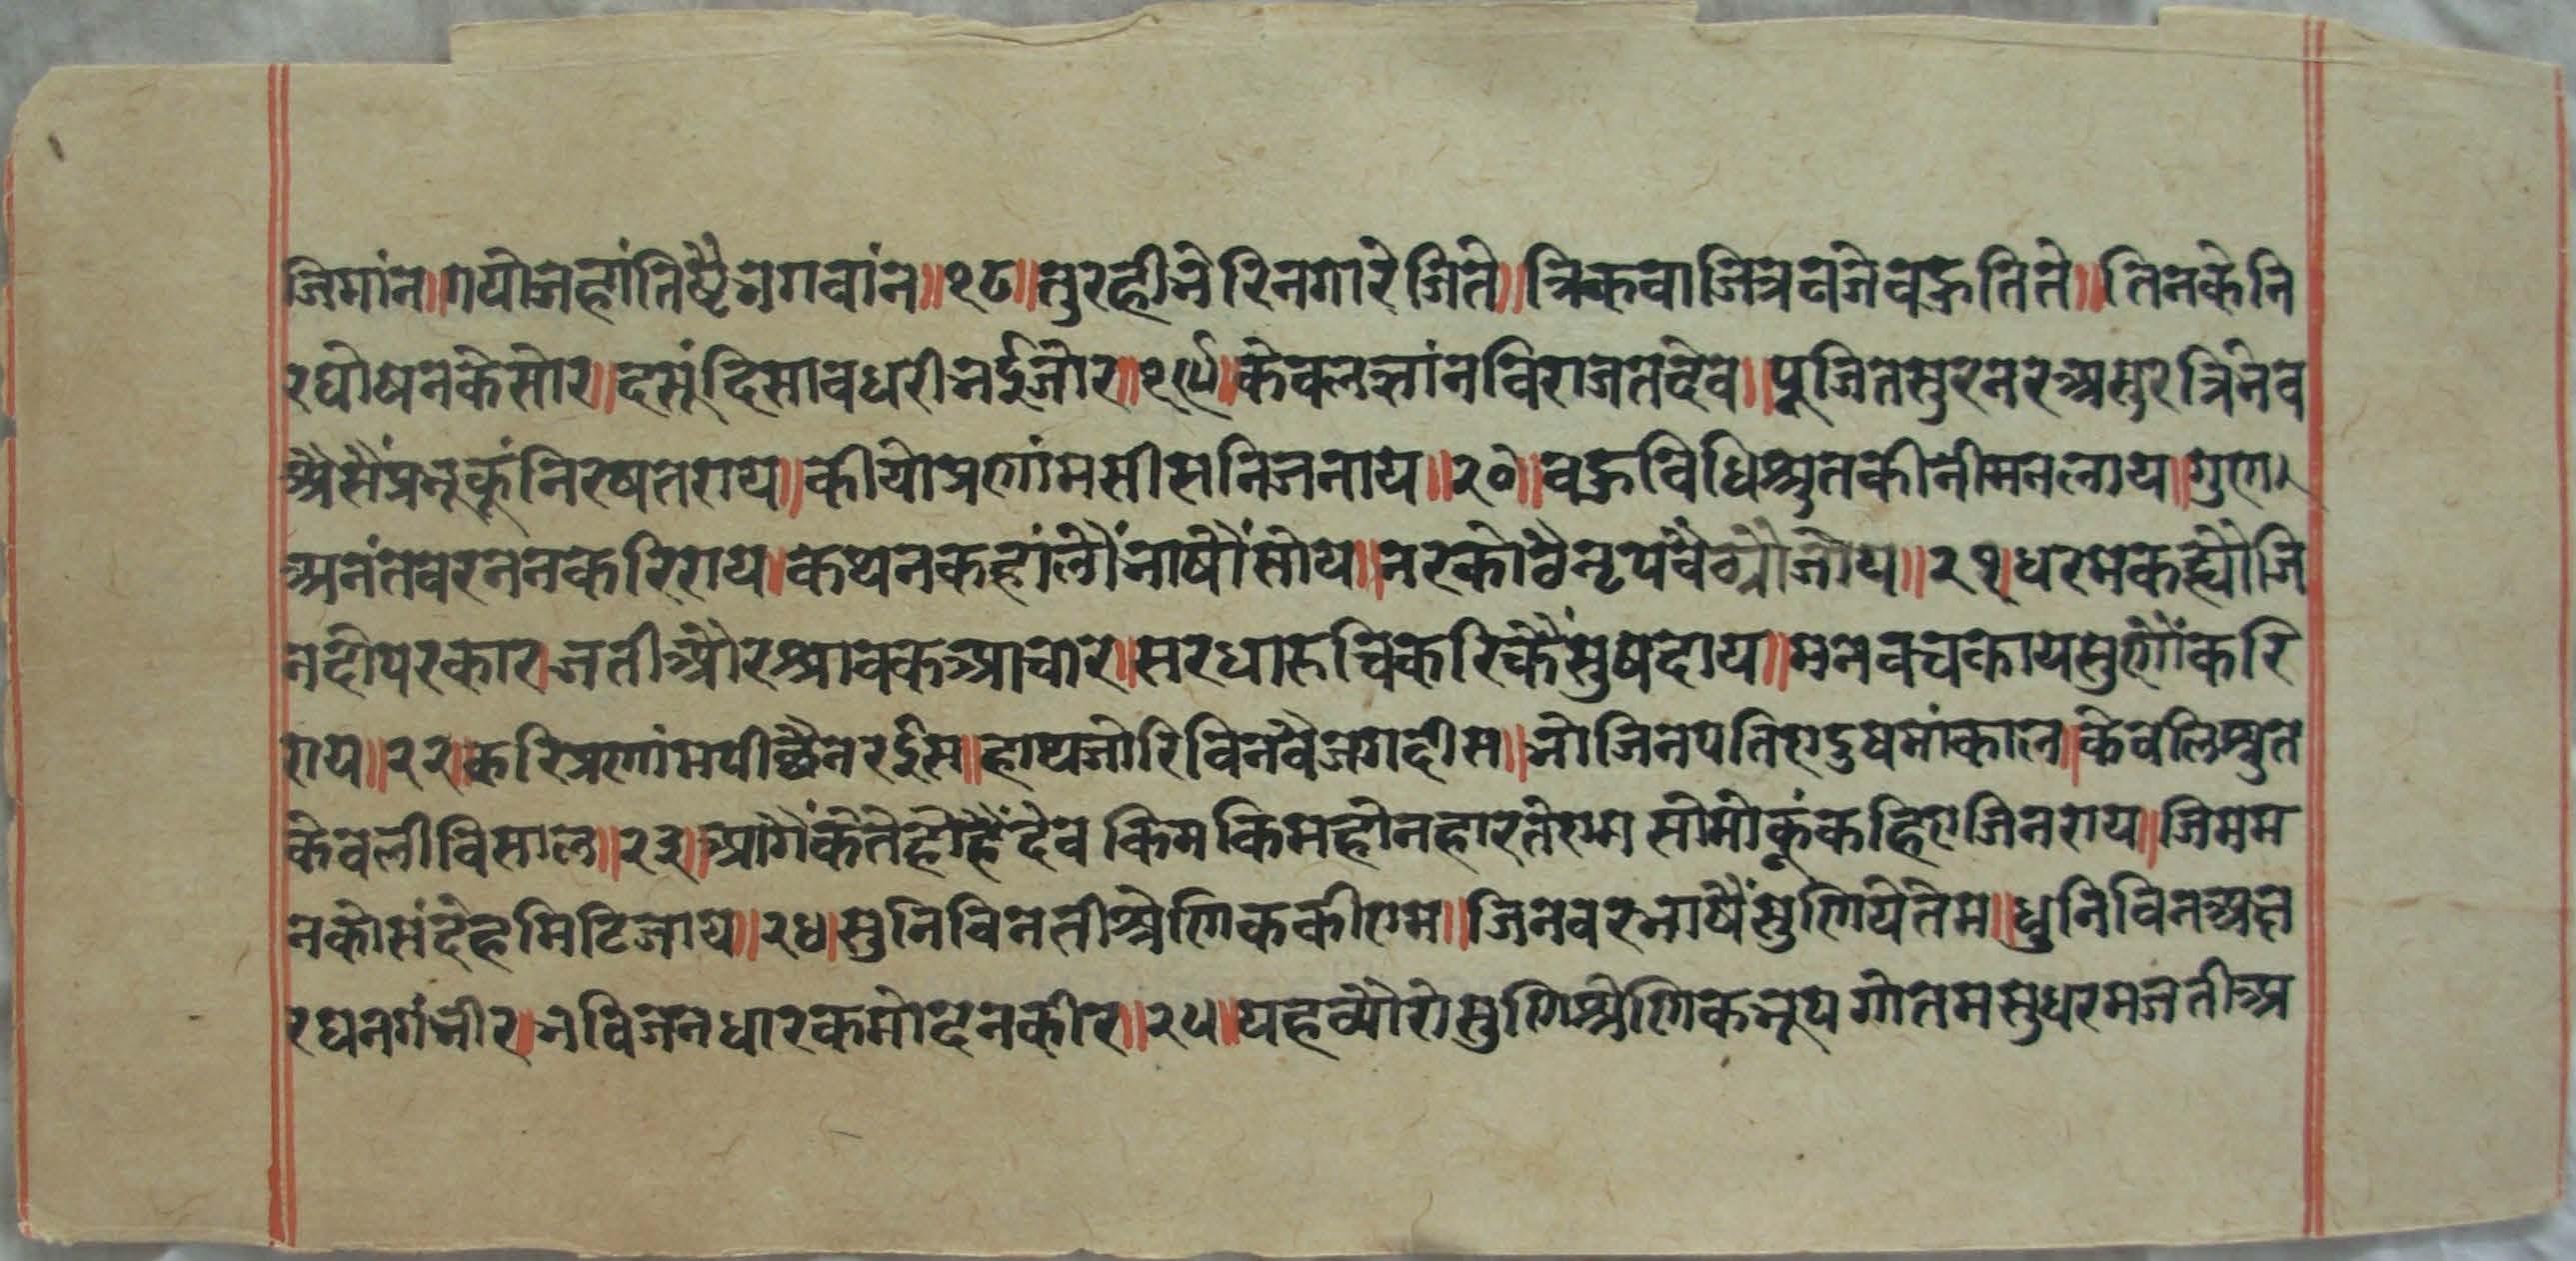 जिमांन॥गयोजहांतिष्टैभगवांन॥१८॥तुरहीभेरिनगारेजिते॥त्रिकवाजित्रवजेवहुतिते॥तिनकेनि
रघोषनकेसोर॥दसूंदिसावधरीभईजोर॥१९॥केवलज्ञांनविराजतदेव॥पूजितसुरनरअसुरत्रिनेव
अैसैंप्रभूकूंनिरषतराय॥कीयोप्रणांमसीसनिजनाय॥२०॥वहुविधिश्रुतकीनीमनलाय॥गुण।
अनंतवरननकरिराय।कथनकहांलौंभाषौंसोय॥नरकोवैनृपवैठौजोय॥२१।धरमकह्यौजि
नदोपरकार।जतीऔरश्रावकआचार॥सरधारुचिकरिकैंसुषदाय॥मनवचकायसुणौंकरि
राय॥२२॥करिप्रणांमपीछैनरईस॥हाथजोरिविनवैजगदीस॥भोजिनपतिएदुषमांकाल।केवलिश्रुत
केवलीविसाल॥२३।आगैंकेतेहोहैंदेव किमकिमहोनहारतेएम सोमोकूंकहिएजिनराय॥जिमम
नकोसंदेहमिटिजाय॥२४।सुनिविनतीश्रेणिककीएम॥जिनवरभाषैंसुणियेतेम॥धुनिविनअक्ष
रघनगंभीर।भविजनधारकमोदनकीर॥२५॥यहव्यौरोसुणिश्रेणिकभूप गोतमसुधरमजतीअ